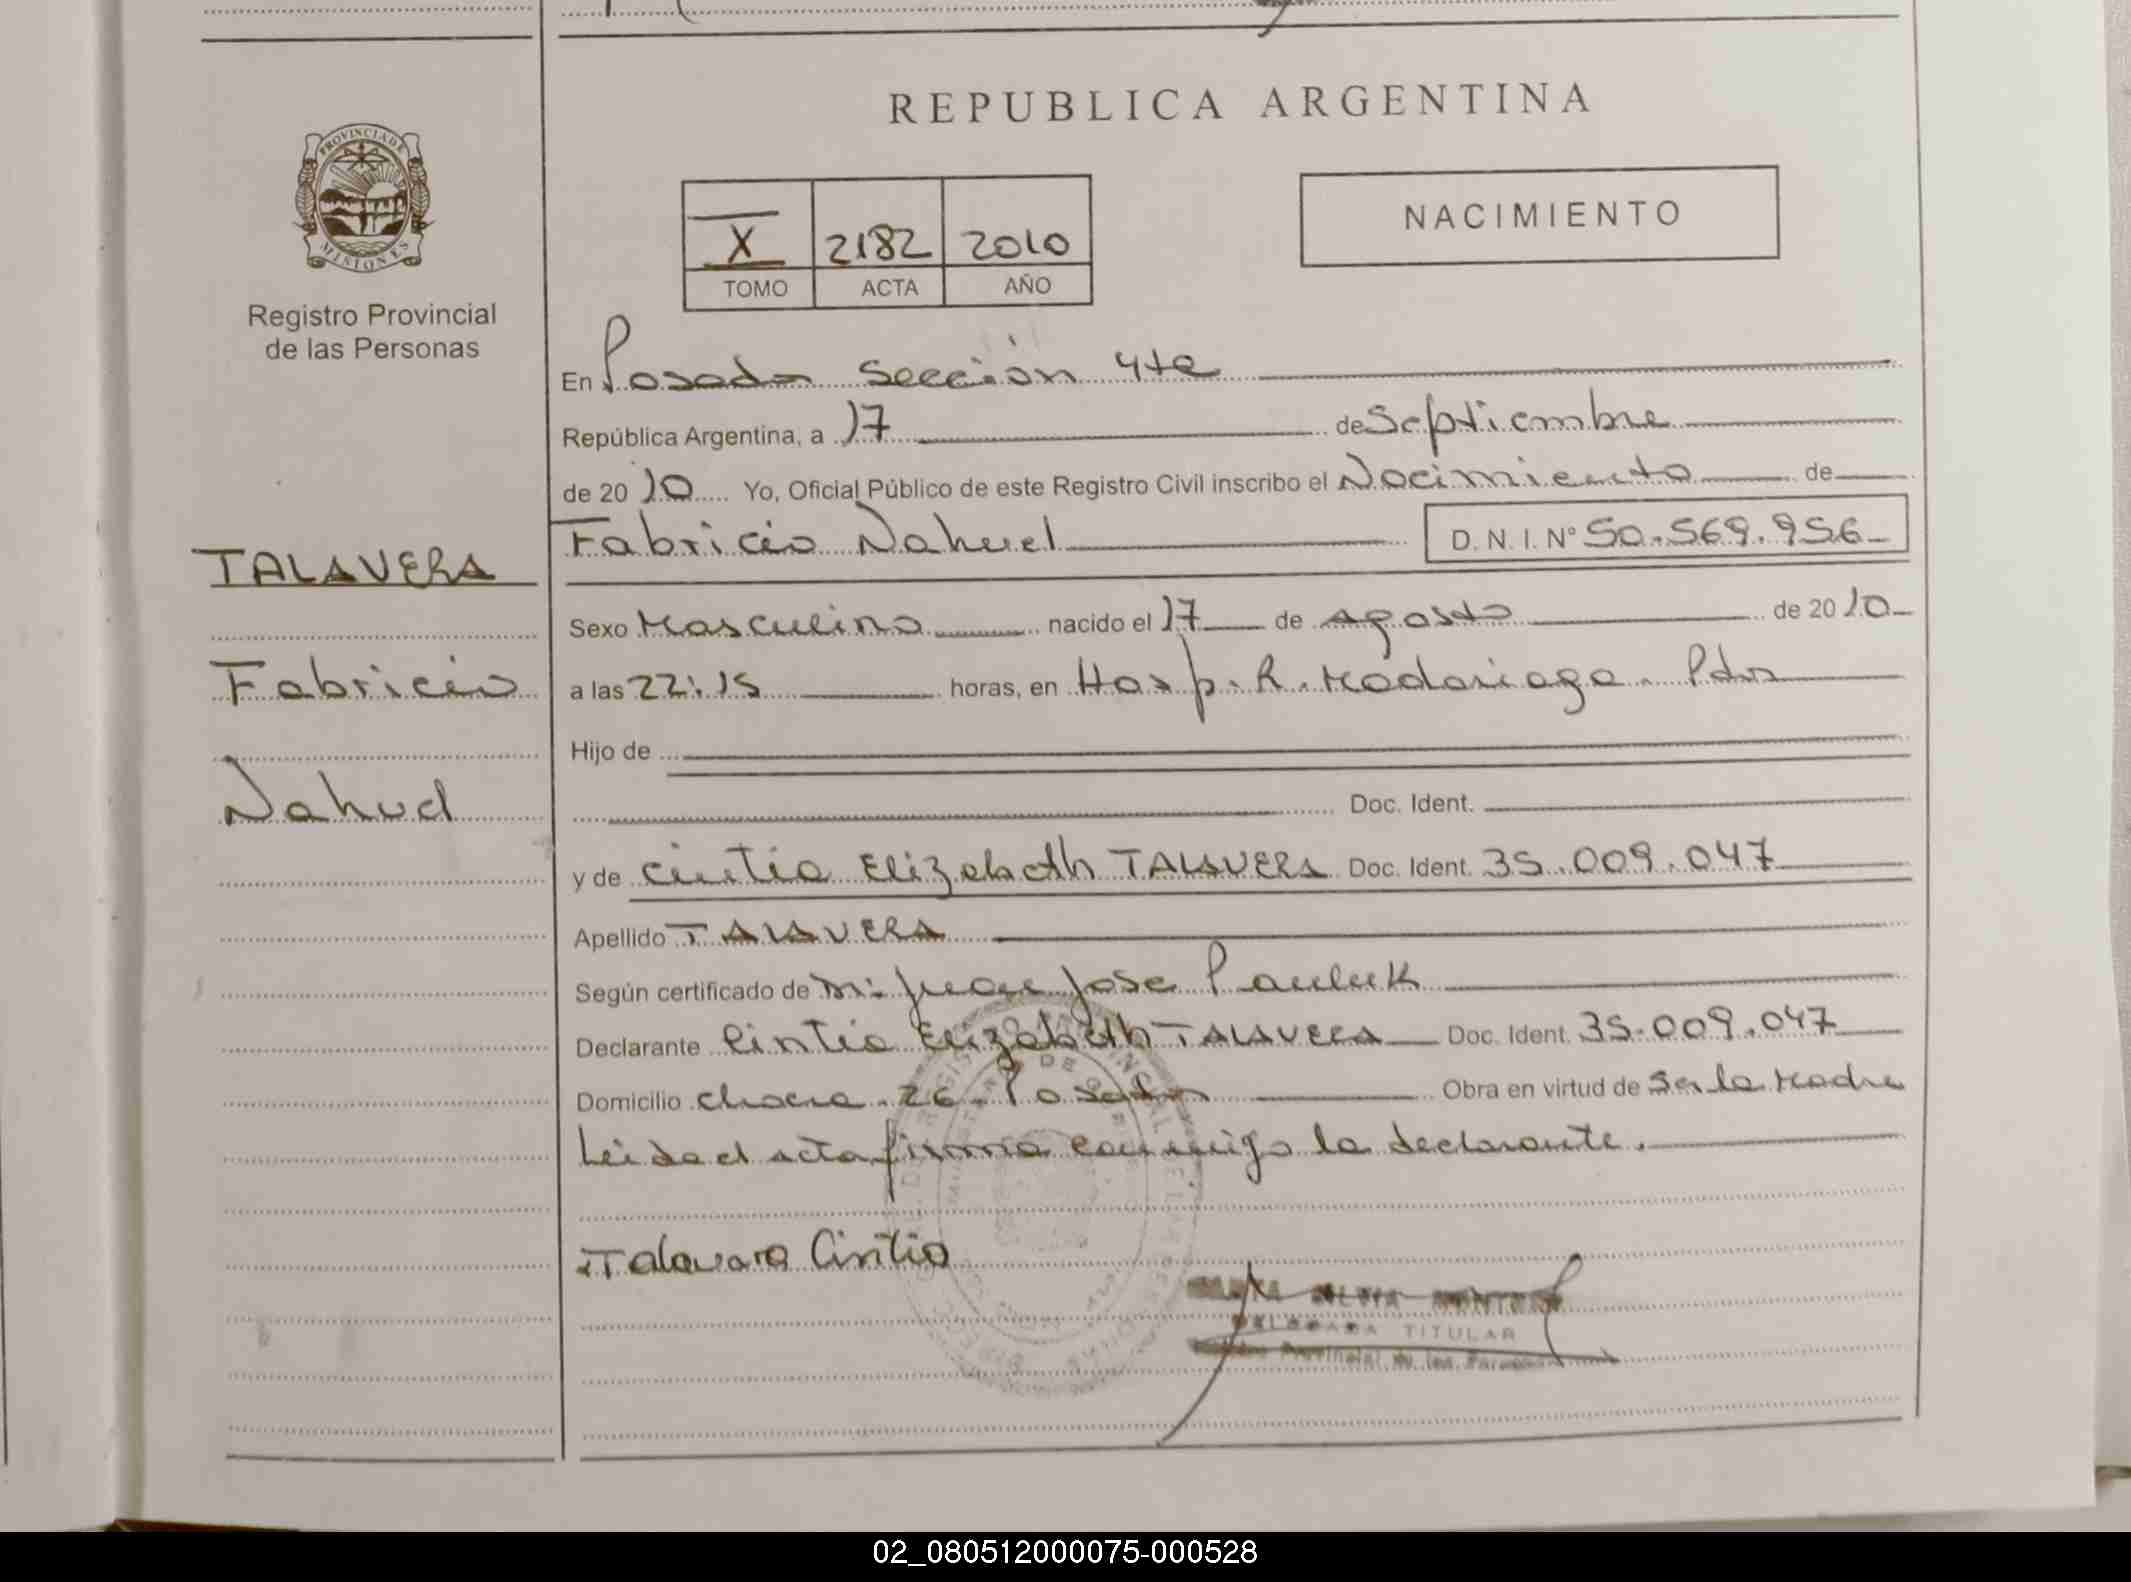 REPUBLICA ARGENTINA
PROVINCIA DE
MISIONES
Registro Provincial
de las Personas
NACIMIENTO
X 2182 2010
TOMO ACTA AÑO
En Posadas Sección 4ta
República Argentina, a 17 de Septiembre
de 2010 Yo, Oficial Público de este Registro Civil inscribo el Nacimiento de
Fabricio Nahuel D. N. I. N° 50.569.956
TALAVERA
Fabricio
Nahuel
Sexo Masculino nacido el 17 de Agosto de 2010
a las 22:15 horas, en Hosp. R. Madariaga. Pdas
Hijo de
Doc. Ident.
y de Cintia Elizabeth TALAVERA Doc. Ident. 35.009.047
Apellido TALAVERA
Según certificado de Juan Jose Pauluk
Declarante Cintia Elizabeth TALAVERA Doc. Ident. 35.009.047
Domicilio chacra. 26. Posadas Obra en virtud de Ser la Madre
Leida el acta firma conmigo la declarante.
Talavara Cintia
DELEGADA TITULAR
Provincial de las Personas
02_080512000075-000528